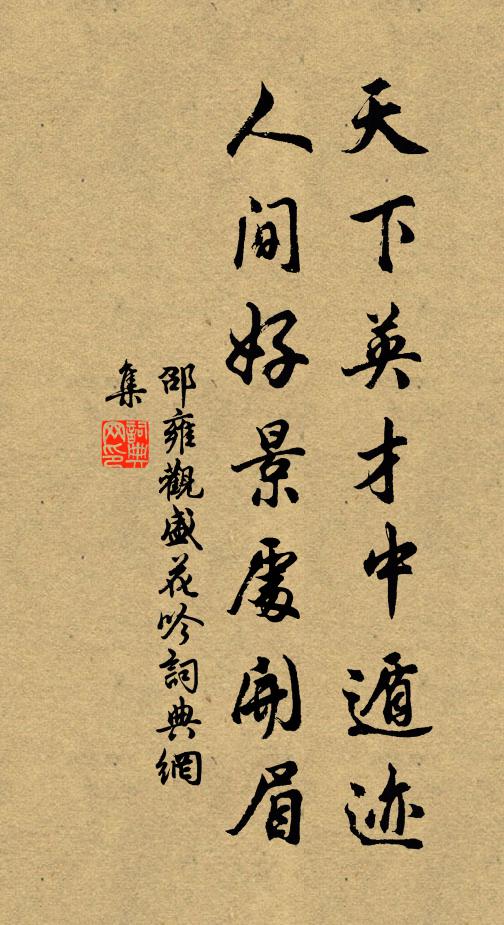 天下英才中遁迹
人间好景處開眉
邵雍觀盛花吟詞典網
集
詞典网印